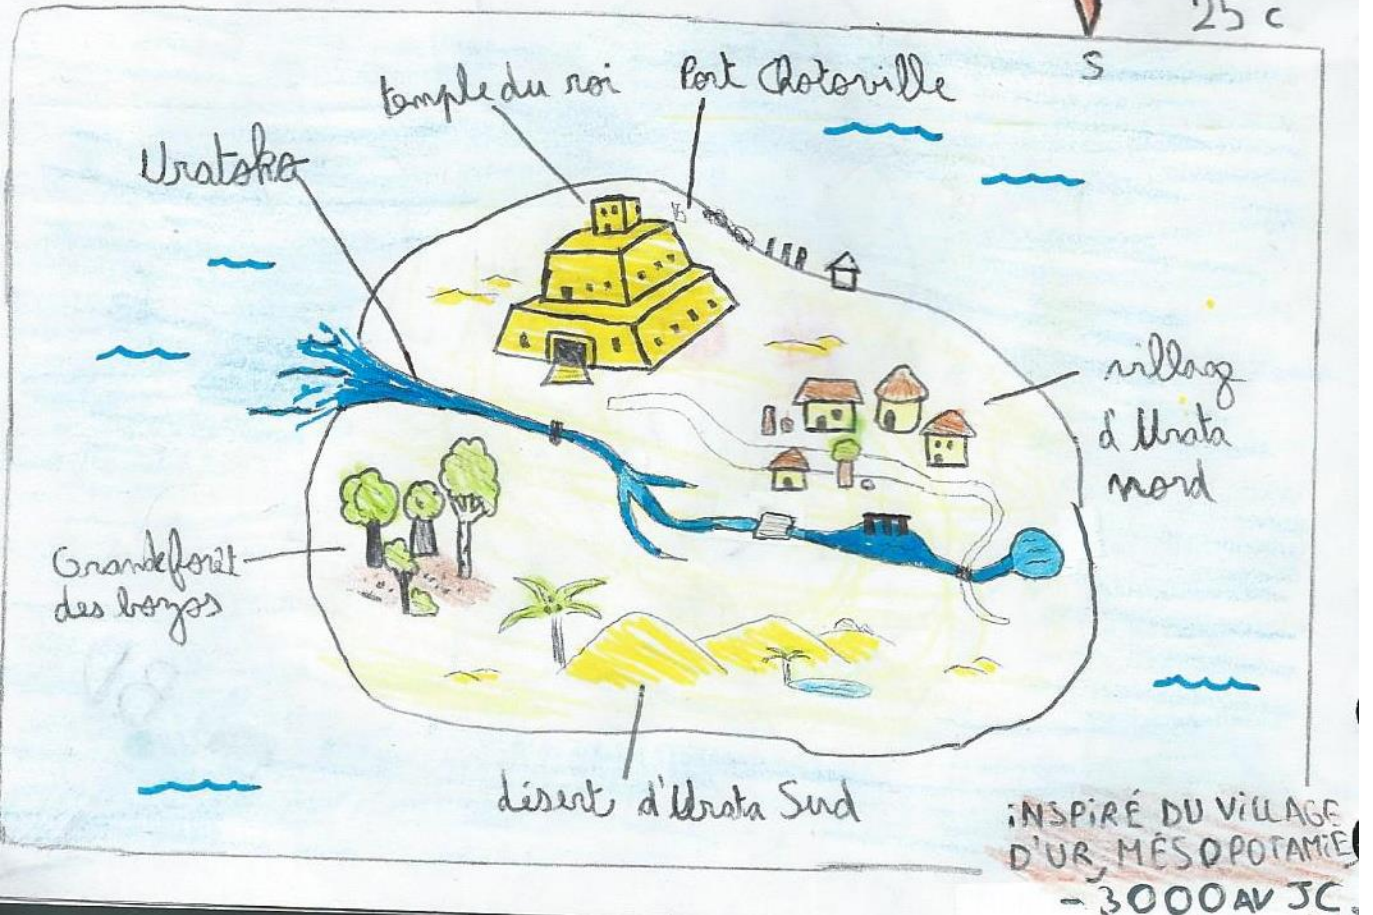 25 c
S
temple du roi
Port Chotoville
Uratoko
village
d'Urata
nord
Grande forêt
des bozos
désert d'Urata Sud
iNSPiRÉ DU ViLLAGE
D'UR, MÉSOPOTAMiE
-3000 AV JC.